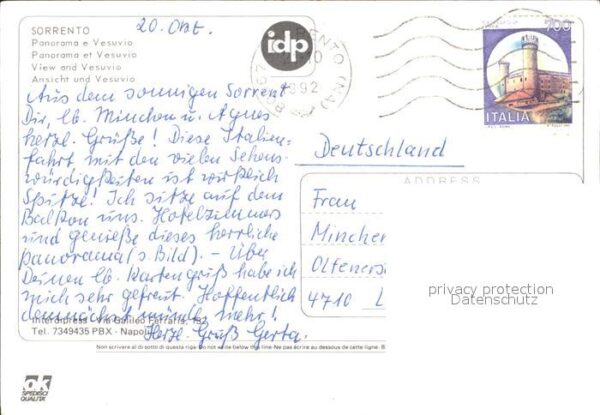 SORRENTO
Panorama e Vesuvio
Panorama et Vesuvio
View and Vesuvio
Ansicht und Vesuvio
20. Okt.
idp
1992
700
ITALIA
Aus dem sonnigen Sorrent
Dir, lb. Minchen u. Agnes
herzl. Grüße! Diese Italien-
fahrt mit den vielen Sehens-
würdigkeiten ist wirklich
Spitze! Ich sitze auf dem
Balkon uns. Hotelzimmers
und genieße dieses herrliche
Panorama (s. Bild). – Über
Deinen lb. Kartengruß habe ich
mich sehr gefreut. Hoffentlich
demnächst mündl. mehr!
Herzl. Gruß Gerta.
Deutschland
ADDRESS
Frau
Minchen
Olfener
4710 L
privacy protection
Datenschutz
Interdipress - Via Galileo Ferraris, 132
Tel. 7349435 PBX - Napoli
Non scrivere al di sotto di questa riga - Do not write below this line - Ne pas écrire au dessous de cette ligne
ok
SPEDISCI
QUALITA'